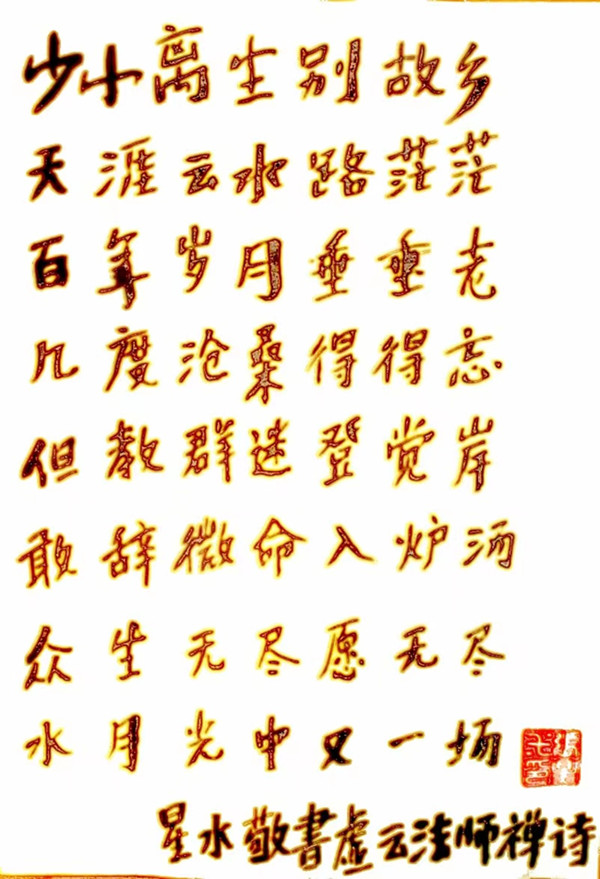 少小离生别故乡
天涯云水路茫茫
百年岁月垂垂老
几度沧桑得得忘
但教群迷登觉岸
敢辞微命入炉汤
众生无尽愿无尽
水月光中又一场
星水敬书虚云法师禅诗